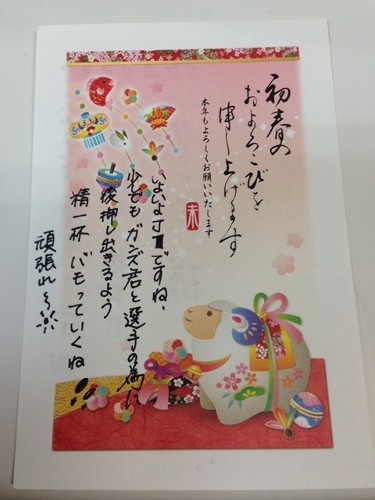 初春の
およろこびを
申し上げます
本年もよろしくお願いいたします
未
いよいよJ1ですね、
少しでもガンズ君と選手の為に
後押し出きるよう
精一杯バモっていくね!
頑張れ〜